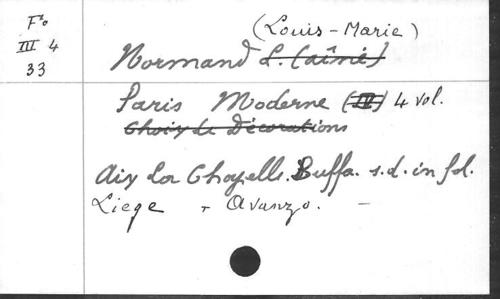 Fº
III 4
33
(Louis-Marie)
Normand L. (aîné)
Paris Moderne (IV) 4 vol.
Choix de Décorations
Aix la Chapelle. Buffa. s.d. in fol.
Liege - Avanzo. -